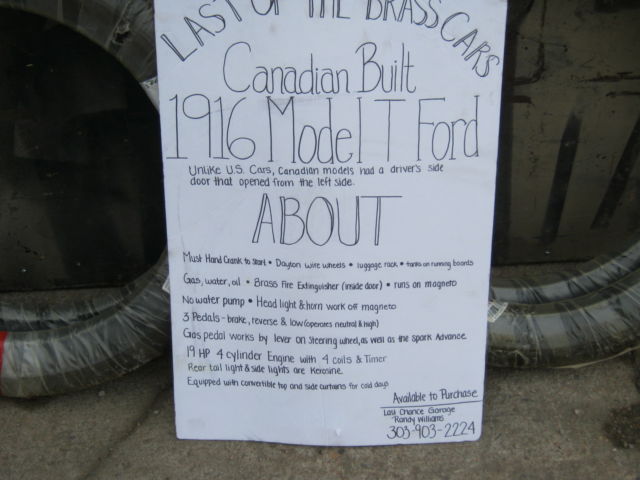 LAST OF THE BRASS CARS
Canadian Built
1916 Model T Ford
Unlike U.S. Cars, Canadian models had a driver's side
door that opened from the left side.
ABOUT
Must Hand Crank to Start • Dayton wire wheels • luggage rack • tanks on running boards
Gas, water, oil • Brass Fire Extinguisher (inside door) • runs on magneto
No water pump • Head light & horn work off magneto
3 Pedals - brake, reverse & low (operates neutral & high)
Gas pedal works by lever on Steering wheel, as well as the spark Advance
19 HP 4 cylinder Engine with 4 coils & Timer
Rear tail light & side lights are Kerosine.
Equipped with convertible top and side curtains for cold days
Available to Purchase
Last Chance Garage
Randy Williams
303-903-2224